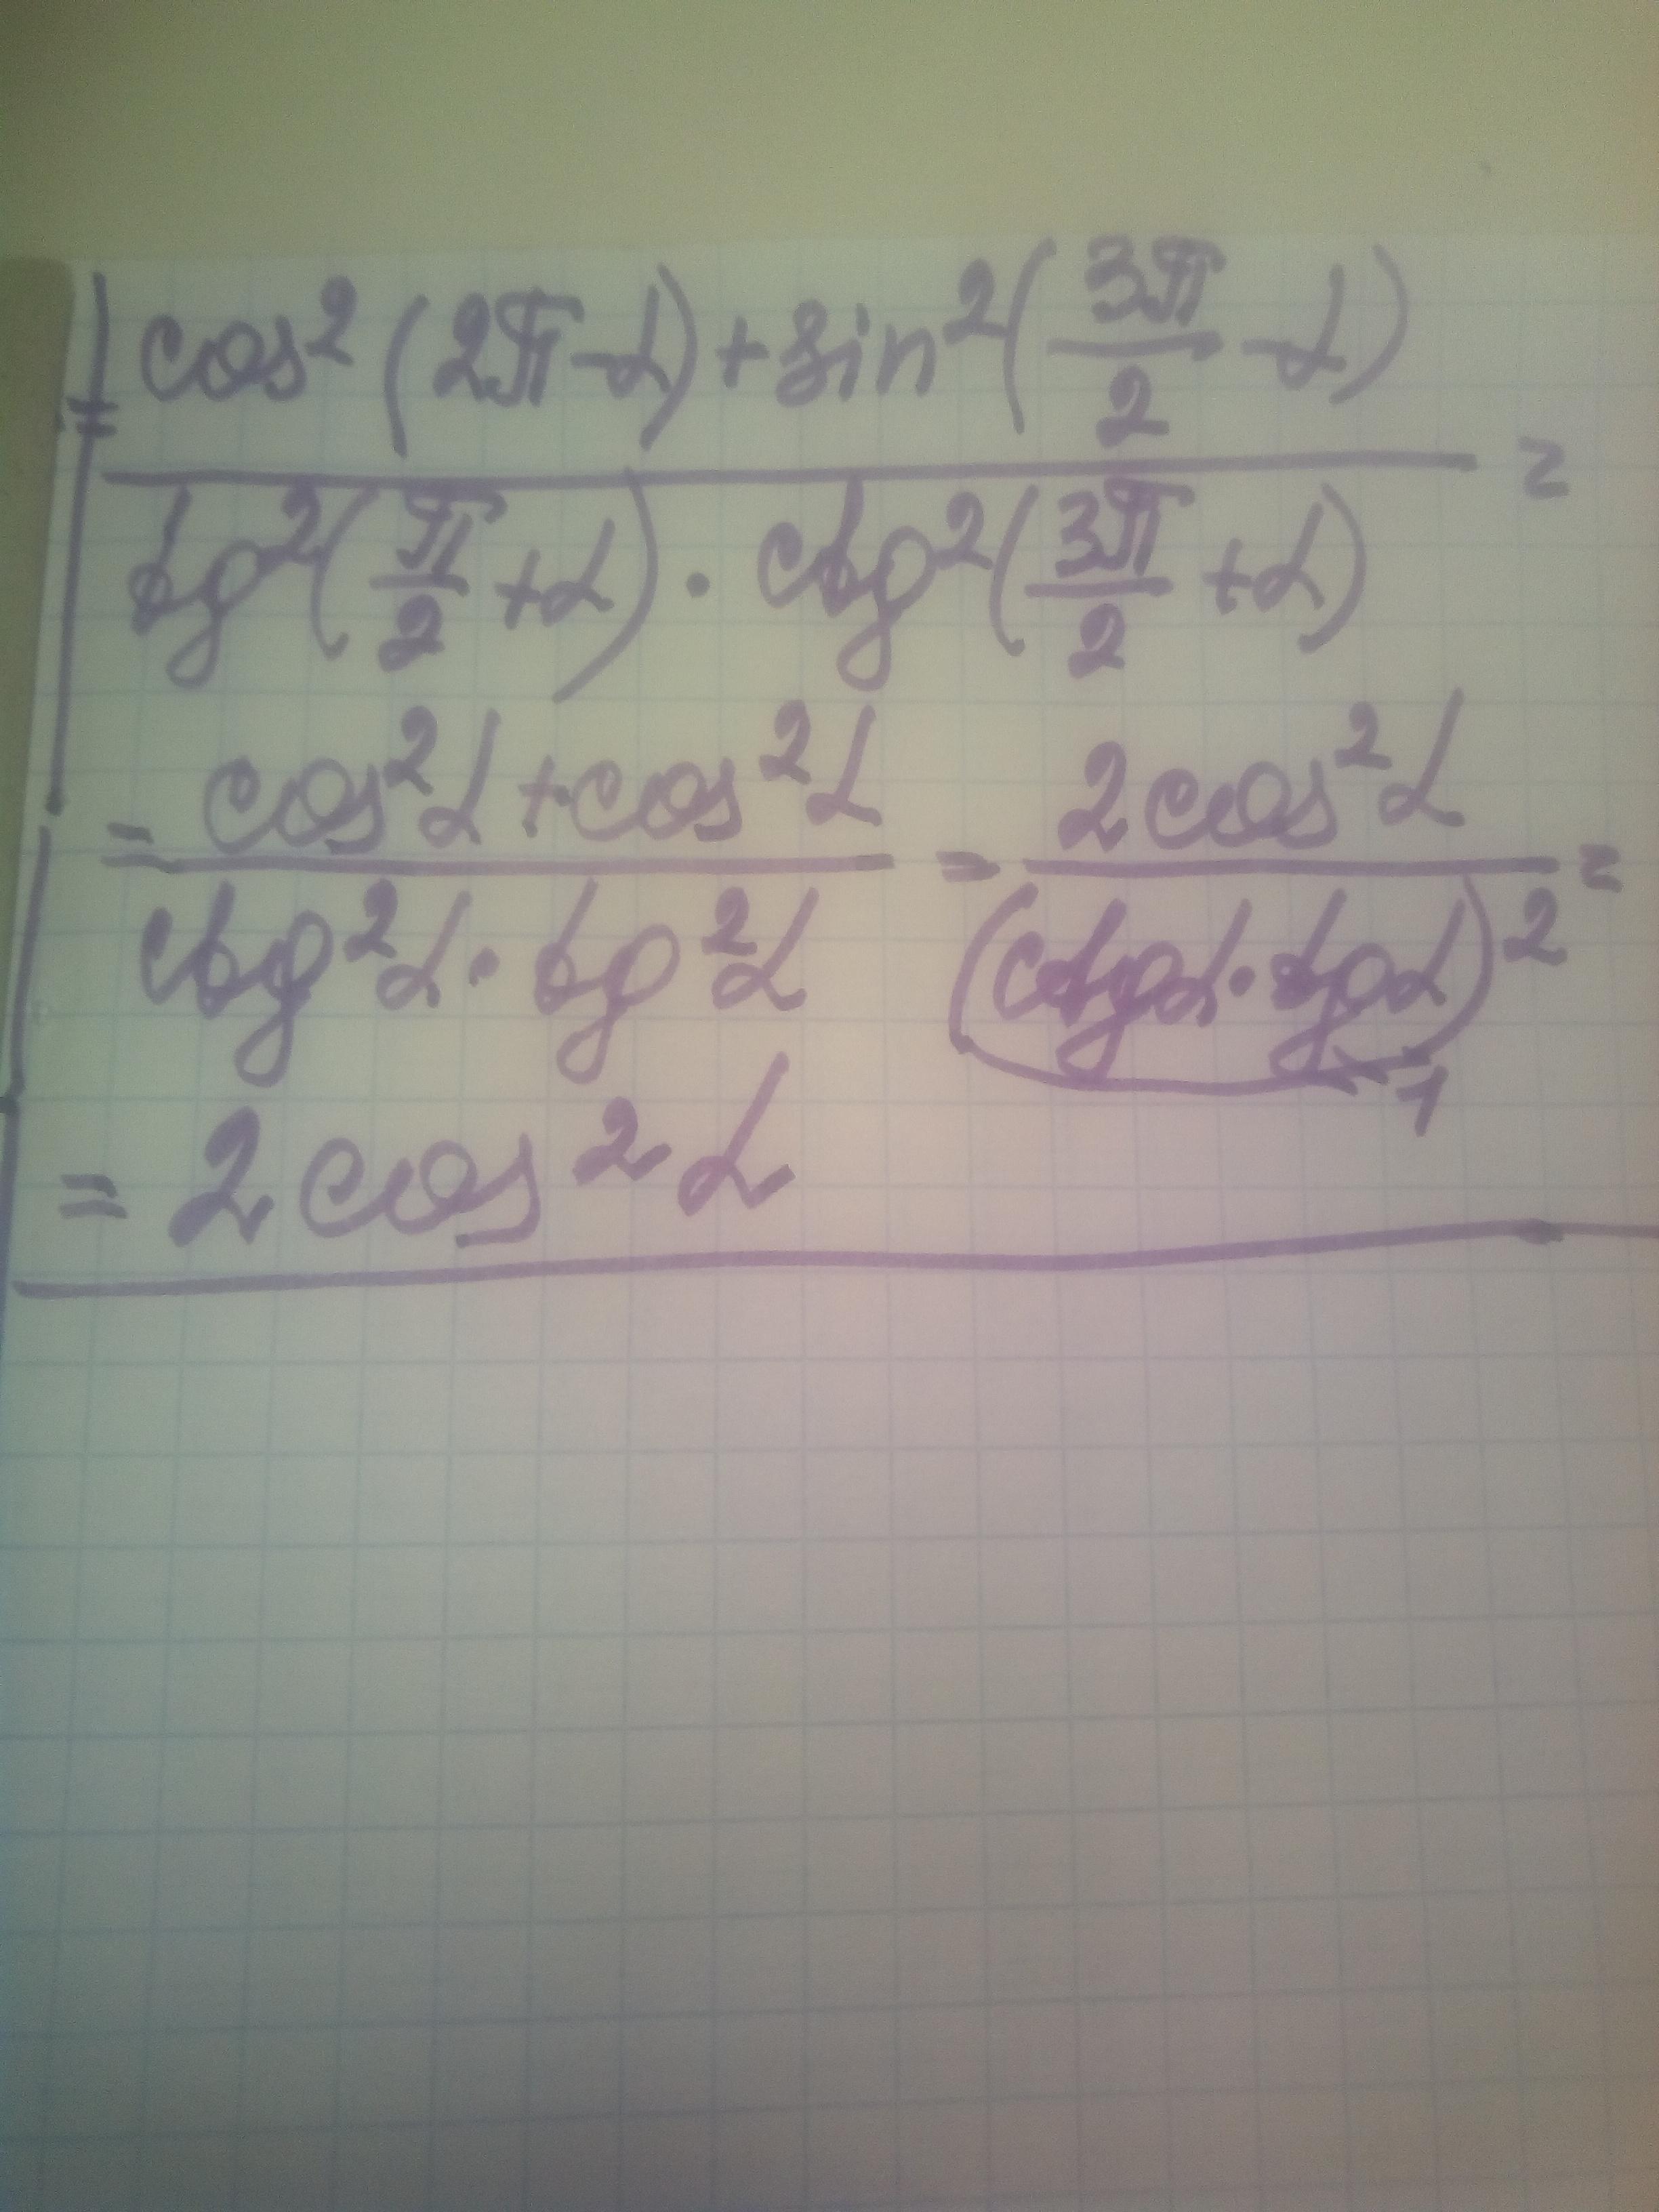 = cos²(2π-α)+sin²(3π/2-α) / tg²(π/2+α)·ctg²(3π/2+α) =
= cos²α+cos²α / ctg²α·tg²α = 2cos²α / (ctgα·tgα)² =
1
= 2cos²α